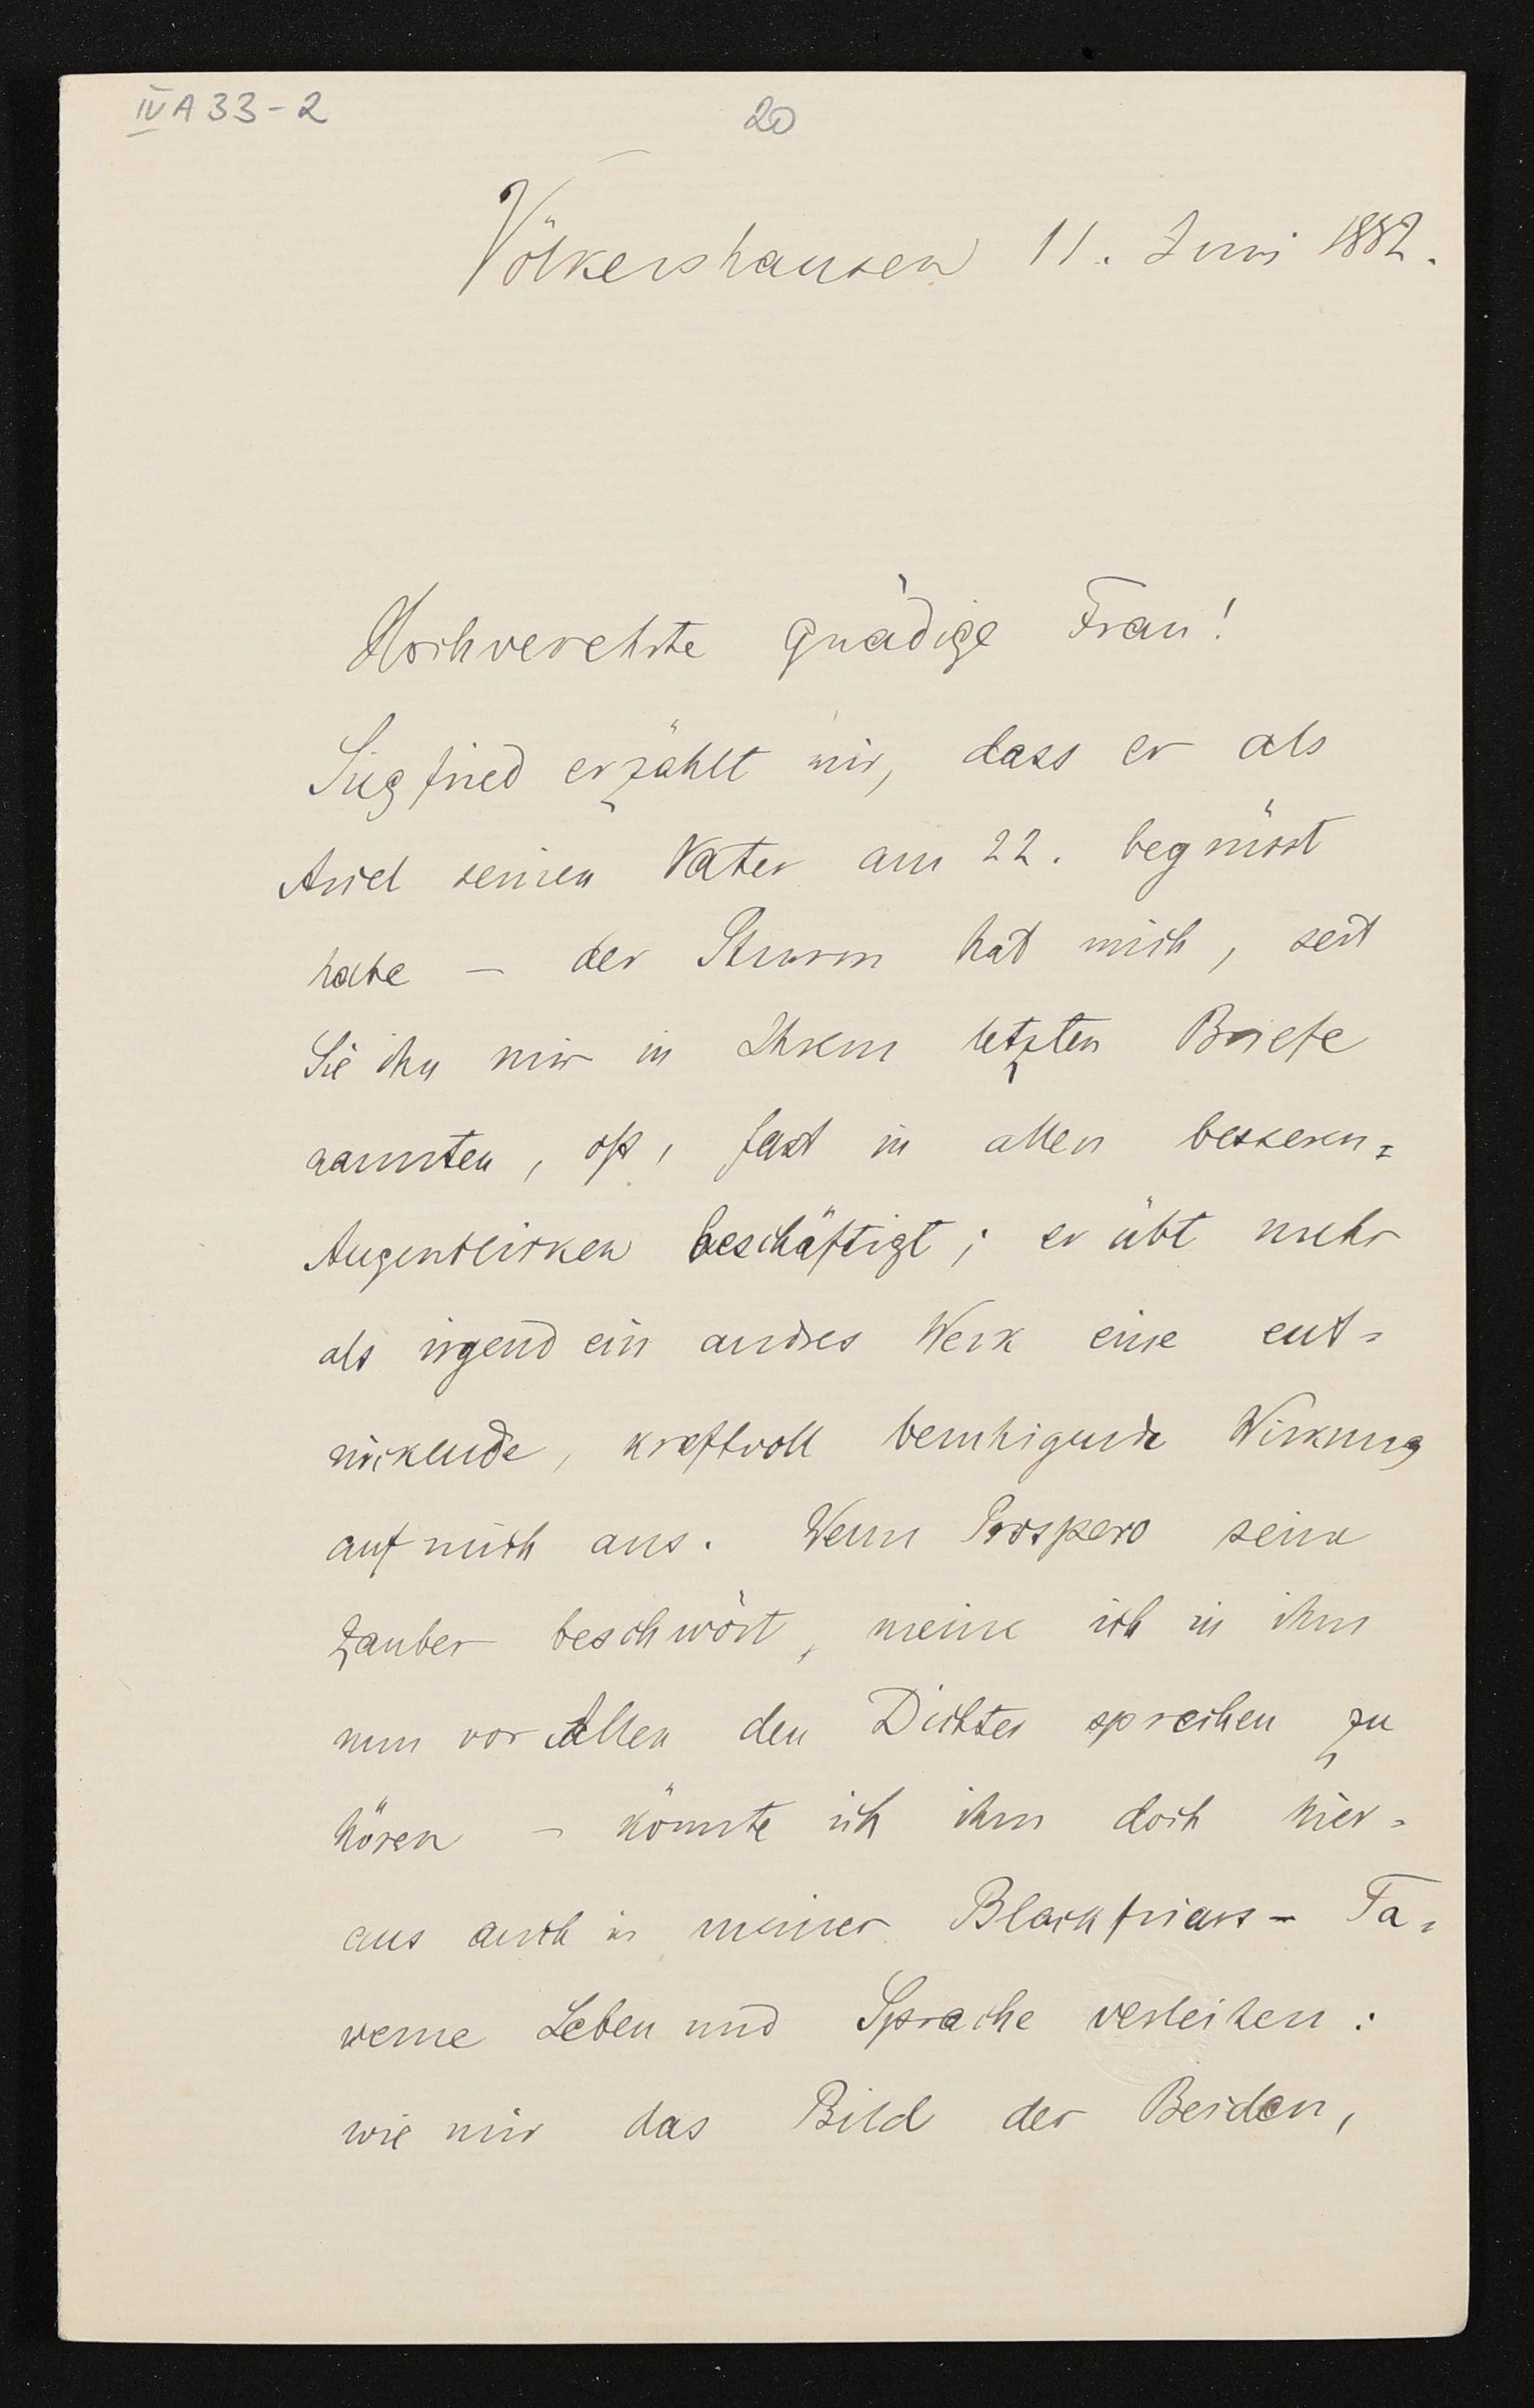 IV A 33-2
20
Völkershausen 11. Juni 1882.
Hochverehrte gnädige Frau!
Siegfried erzählt mir, dass er als
Ariel seinen Vater am 22. begrüsst
habe – der Sturm hat mich, seit
Sie ihn mir in Ihrem letzten Briefe
nannten, oft, fast in allen besseren
Augenblicken beschäftigt; er übt mehr
als irgend ein andres Werk eine ent=
rückende, kraftvoll beruhigende Wirkung
auf mich aus. Wenn Prospero seine
Zauber beschwört, meine ich in ihm
nun vor Allen den Dichter sprechen zu
hören – könnte ich ihm doch hier=
aus auch in meiner Blackfriars-Ta=
verne Leben und Sprache verleihen:
wie mir das Bild der Beiden,